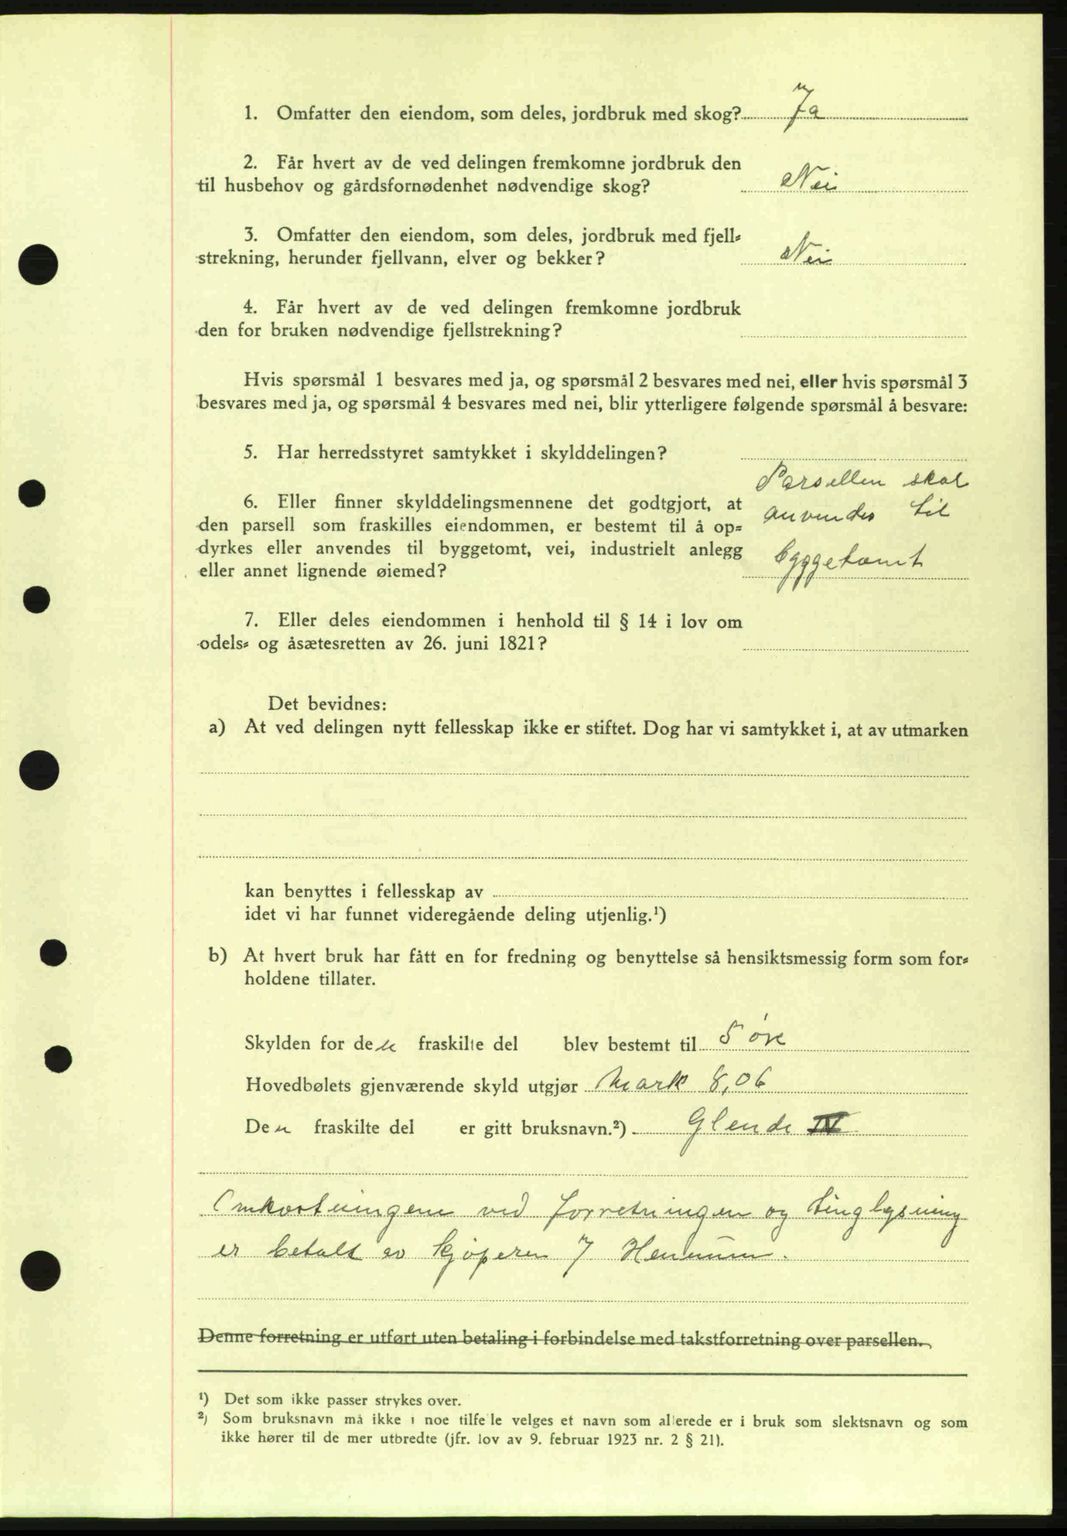 1. Omfatter den eiendom, som deles, jordbruk med skog? Ja
2. Får hvert av de ved delingen fremkomne jordbruk den
til husbehov og gårdsfornødenhet nødvendige skog? Nei
3. Omfatter den eiendom, som deles, jordbruk med fjell-
strekning, herunder fjellvann, elver og bekker? Nei
4. Får hvert av de ved delingen fremkomne jordbruk
den for bruken nødvendige fjellstrekning?
Hvis spørsmål 1 besvares med ja, og spørsmål 2 besvares med nei, eller hvis spørsmål 3
besvares med ja, og spørsmål 4 besvares med nei, blir ytterligere følgende spørsmål å besvare:
5. Har herredsstyret samtykket i skylddelingen?
Parsellen skal
6. Eller finner skylddelingsmennene det godtgjort, at
anvendes til
den parsell som fraskilles eiendommen, er bestemt til å op-
dyrkes eller anvendes til byggetomt, vei, industrielt anlegg
byggetomt
eller annet lignende øiemed?
7. Eller deles eiendommen i henhold til § 14 i lov om
odels- og åsætesretten av 26. juni 1821?
Det bevidnes:
a) At ved delingen nytt fellesskap ikke er stiftet. Dog har vi samtykket i, at av utmarken
kan benyttes i fellesskap av
idet vi har funnet videregående deling utjenlig.¹)
b) At hvert bruk har fått en for fredning og benyttelse så hensiktsmessig form som for-
holdene tillater.
Skylden for den fraskilte del blev bestemt til 5 øre
Hovedbølets gjenværende skyld utgjør Mark 8,06
Den fraskilte del er gitt bruksnavn.²) Glende IV
Omkostningene ved forretningen og tinglysning
er betalt av kjøperen J Hennum.
Denne forretning er utført uten betaling i forbindelse med takstforretning over parsellen.
¹) Det som ikke passer strykes over.
²) Som bruksnavn må ikke i noe tilfelle velges et navn som allerede er i bruk som slektsnavn og som
ikke hører til de mer utbredte (jfr. lov av 9. februar 1923 nr. 2 § 21).